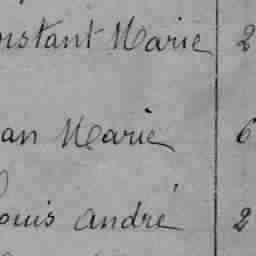 onstant Marie 2
ean Marie 6
Louis André 2